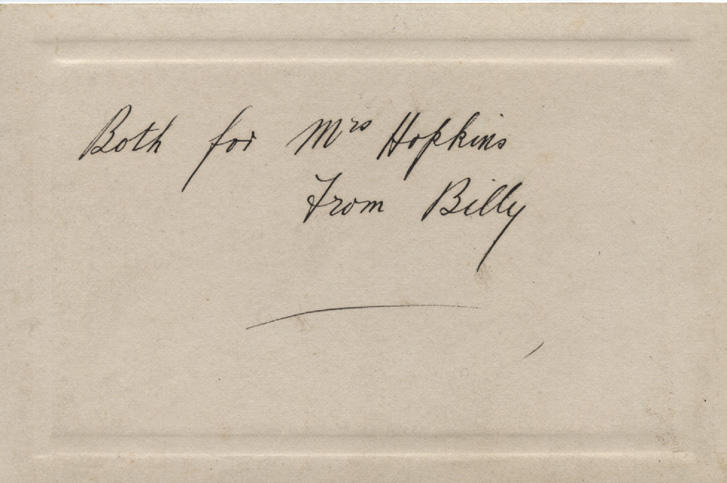 Both for Mrs Hopkins
From Billy